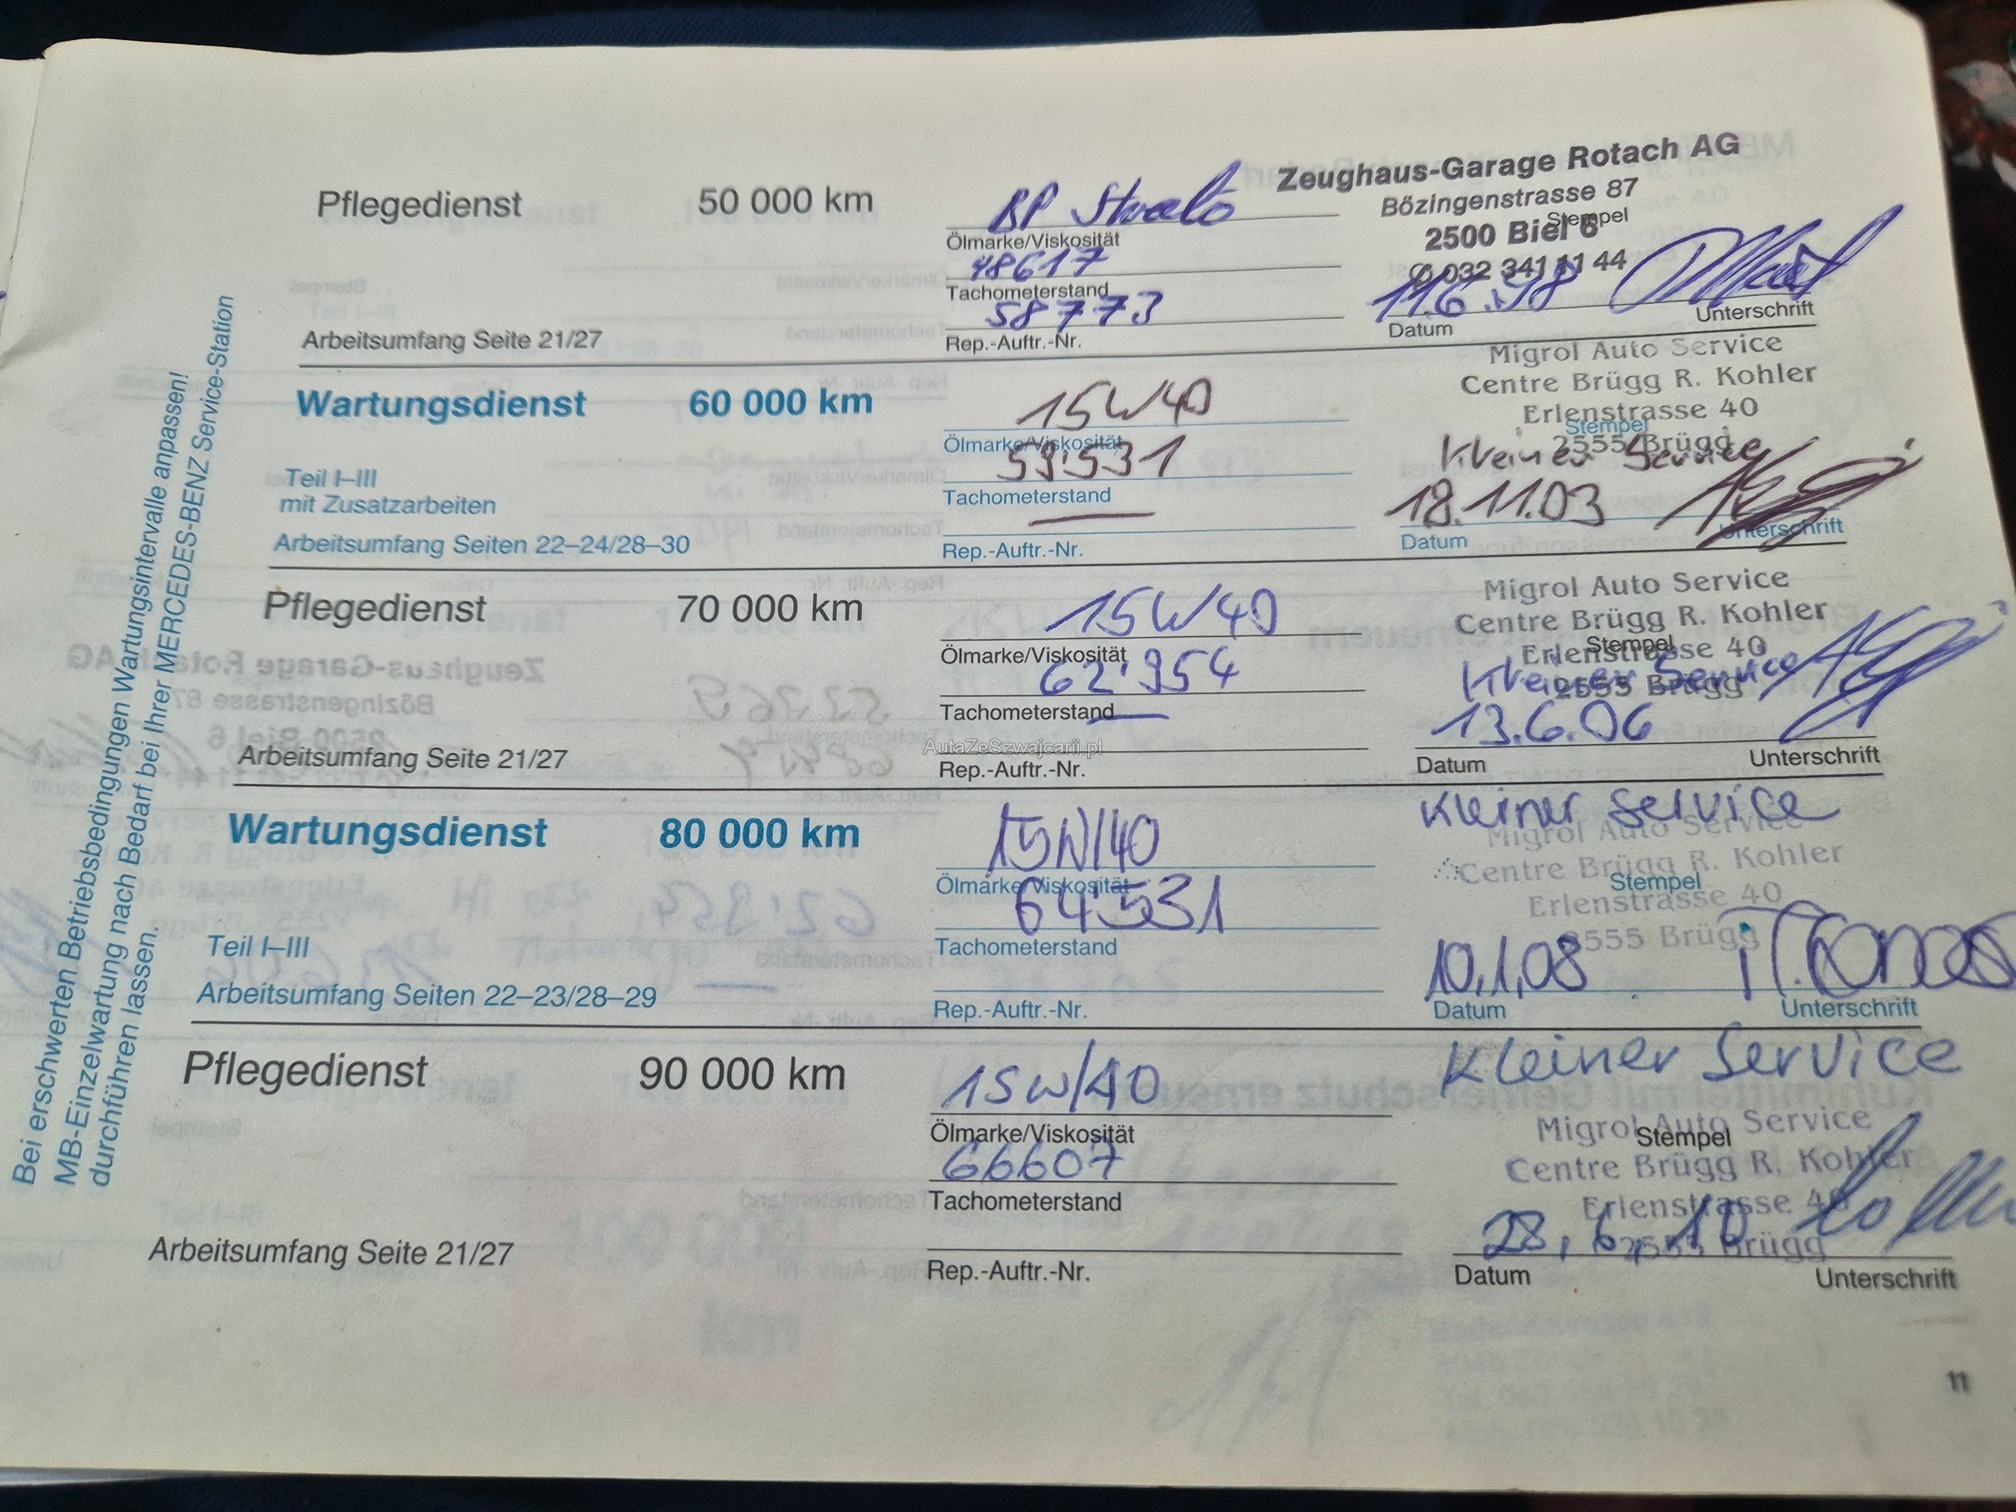 Zeughaus-Garage Rotach AG
Bözingenstrasse 87
2500 Biel 6
032 341 11 44
Pflegedienst 50 000 km
BP
Ölmarke/Viskosität
Stempel
48617
Tachometerstand
58773
11.6.98
Arbeitsumfang Seite 21/27
Rep.-Auftr.-Nr.
Datum
Unterschrift
Migrol Auto Service
Centre Brügg R. Kohler
Erlenstrasse 40
2555 Brügg
Wartungsdienst 60 000 km
15W40
Ölmarke/Viskosität
Stempel
Kleiner Service
59'531
Teil I–III
mit Zusatzarbeiten
Tachometerstand
18.11.03
Arbeitsumfang Seiten 22–24/28–30
Rep.-Auftr.-Nr.
Datum
Unterschrift
Migrol Auto Service
Centre Brügg R. Kohler
Erlenstrasse 40
2555 Brügg
Pflegedienst 70 000 km
15W40
Ölmarke/Viskosität
Stempel
Kleiner Service
62'954
Tachometerstand
13.6.06
AutaZeSzwajcarii.pl
Arbeitsumfang Seite 21/27
Rep.-Auftr.-Nr.
Datum
Unterschrift
Kleiner Service
Migrol Auto Service
Centre Brügg R. Kohler
Erlenstrasse 40
2555 Brügg
Wartungsdienst 80 000 km
15W/40
Ölmarke/Viskosität
Stempel
64'531
Teil I–III
Tachometerstand
10.1.08
Arbeitsumfang Seiten 22–23/28–29
Rep.-Auftr.-Nr.
Datum
Unterschrift
Kleiner Service
Migrol Auto Service
Centre Brügg R. Kohler
Erlenstrasse 40
2555 Brügg
Pflegedienst 90 000 km
15W/40
Ölmarke/Viskosität
Stempel
66607
Tachometerstand
28.6.10
Arbeitsumfang Seite 21/27
Rep.-Auftr.-Nr.
Datum
Unterschrift
Bei erschwerten Betriebsbedingungen Wartungsintervalle anpassen!
MB-Einzelwartung nach Bedarf bei Ihrer MERCEDES-BENZ Service-Station
durchführen lassen.
11